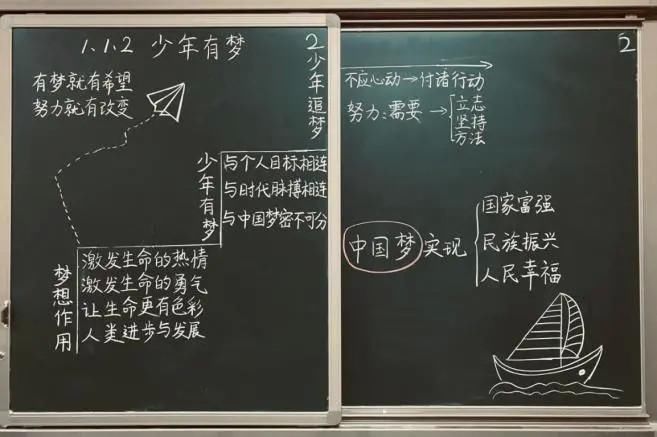 1.1.2 少年有梦
2
有梦就有希望
努力就有改变
少年追梦
少年有梦
与个人目标相连
与时代脉搏相连
与中国梦密不可分
梦想作用
激发生命的热情
激发生命的勇气
让生命更有色彩
人类进步与发展
2
不应心动→付诸行动
努力:需要→
立志
坚持
方法
中国梦实现
国家富强
民族振兴
人民幸福